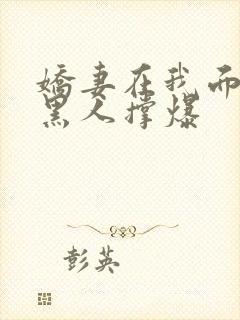 娇妻在我面
黑人撑爆
彭英